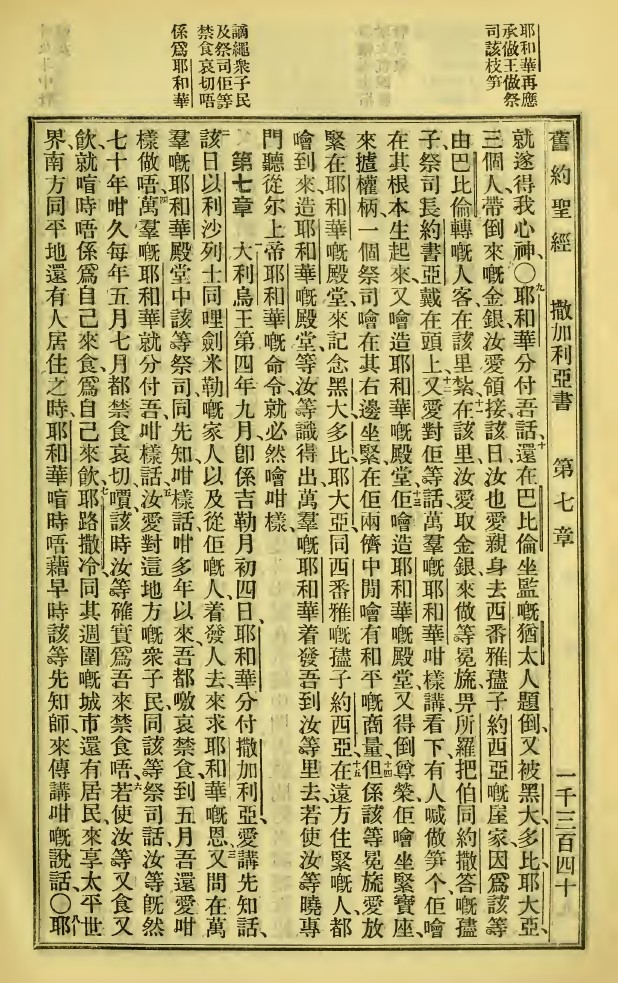 耶和華再應
承做王做祭
司該枝笋
謫繩衆子民
及祭司佢等
禁食哀切唔
係爲耶和華
舊約聖經 撒加利亞書 第七章 一千三百四十
就遂得我心神、〇九耶和華分付吾話、十還在巴比倫坐監嘅猶太人題倒、又被黑大多比耶大亞、
三個人、帶倒來嘅金銀、汝愛領接、該日汝也愛親身去西番雅㜽子約西亞嘅屋家、因爲該等
由巴比倫轉嘅人客在該里紮、十一在該里汝愛取金銀、來做等冕旒、畀所羅把伯同約撒答嘅㜽
子、祭司長約書亞戴在頭上、十二又愛對佢等話、萬羣嘅耶和華咁樣講、看下、有人喊做笋、个佢噲
在其根本生起來、又噲造耶和華嘅殿堂、十三佢噲造耶和華嘅殿堂、又得倒尊榮、佢噲坐緊寶座、
來攄權柄、一個祭司噲在其右邊坐緊、在佢兩儕中閒噲有和平嘅商量、十四但係該等冕旒愛放
緊在耶和華嘅殿堂、來記念黑大多比耶大亞同西番雅嘅㜽子約西亞、十五在遠方住緊嘅人都
噲到來造耶和華嘅殿堂、等汝等識得出萬羣嘅耶和華着發吾到汝等里去、若使汝等曉專
門聽從尔上帝耶和華嘅命令、就必然噲咁樣、
第七章 一大利烏王第四年九月、卽係吉勒月初四日、耶和華分付撒加利亞愛講先知話、
二該日以利沙列士同哩劍米勒嘅家人以及從佢嘅人、着發人去來求耶和華嘅恩、三又問在萬
羣嘅耶和華殿堂中該等祭司、同先知、咁樣話、咁多年以來、吾都噭哀禁食、到五月吾還愛咁
樣做唔、四萬羣嘅耶和華就分付吾、咁樣話、五汝愛對這地方嘅衆子民、同該等祭司話、汝等旣然
七十年咁久、每年五月七月都禁食哀切、嘪該時汝等確實爲吾來禁食唔、六若使汝等又食又
飮、就喧時唔係爲自己來食、爲自己來飮、七耶路撒冷同其週圍嘅城市還有居民、來享太平世
界、南方同平地還有人居住之時、耶和華喧時唔藉早時該等先知師、來傳講咁嘅說話、〇八耶